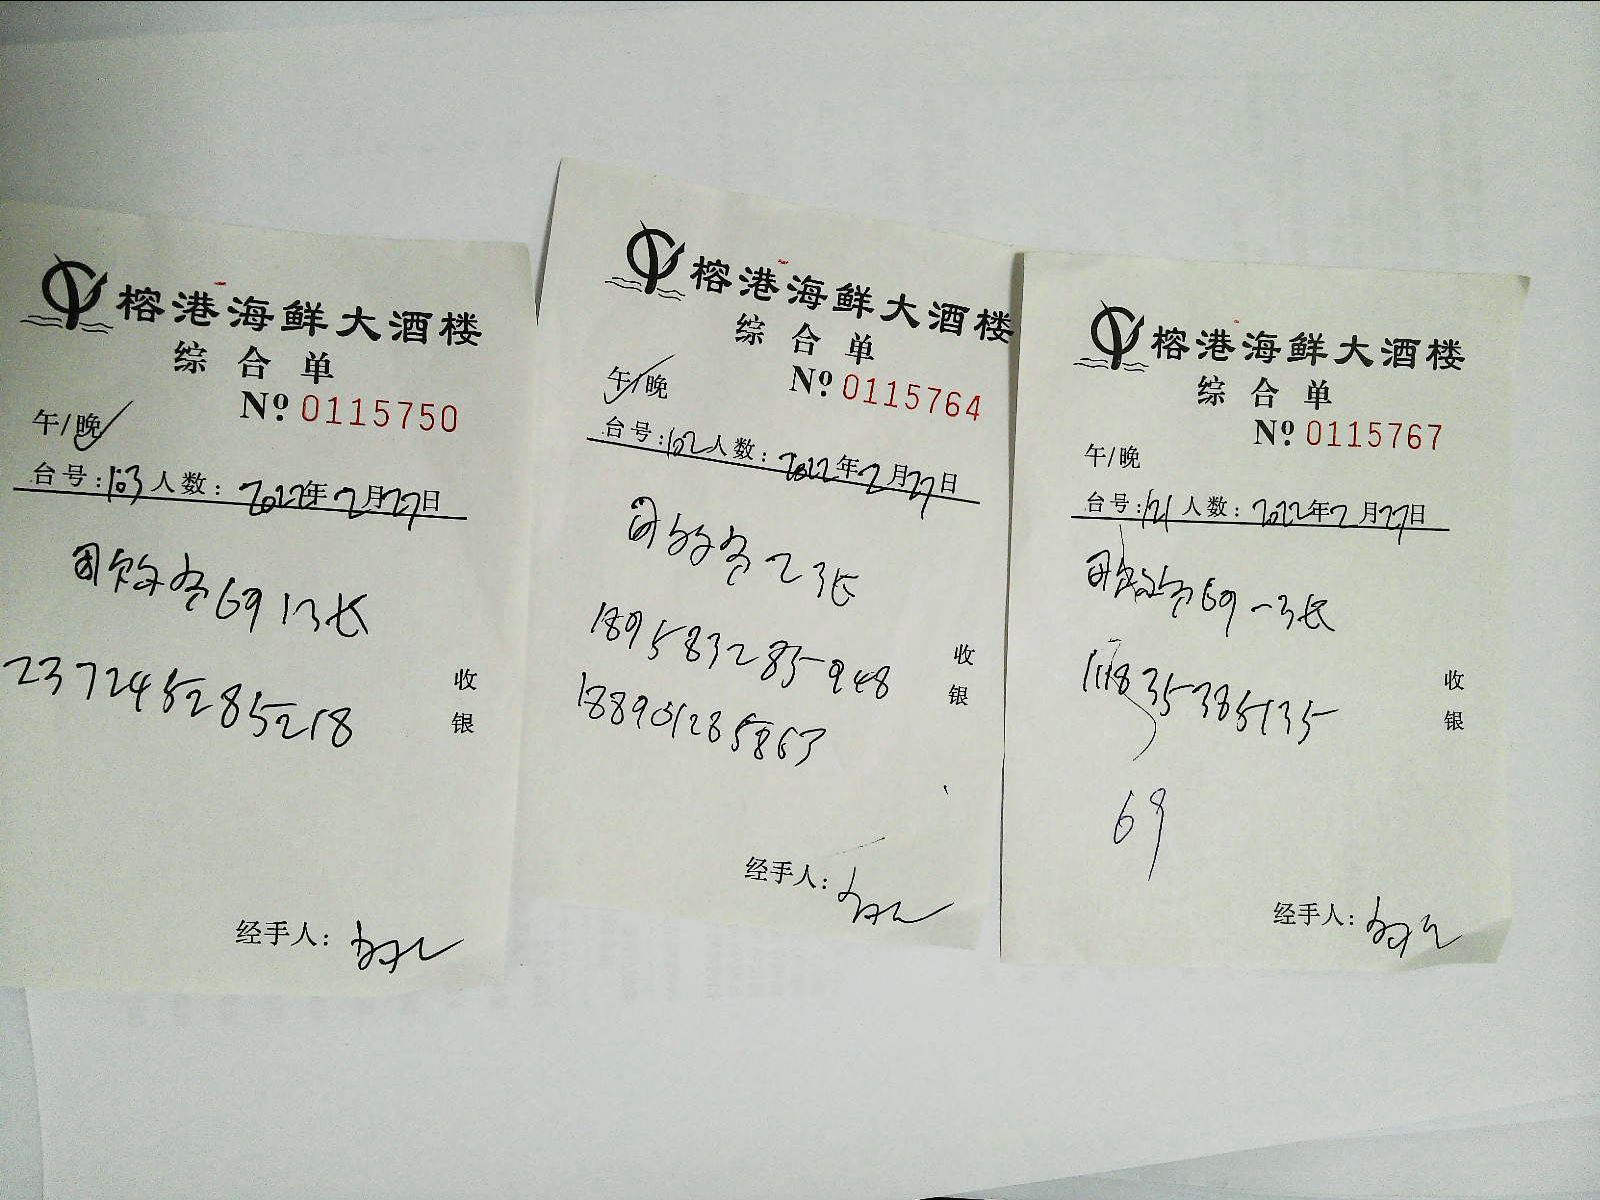 榕港海鲜大酒楼
综合单
№ 0115750
午/晚
台号:103人数: 2022年2月27日
团购套69 1张
237245285218
收
银
经手人:
榕港海鲜大酒楼
综合单
№ 0115764
午/晚
台号:102人数: 2022年2月27日
2张
189583285948
188901285863
收
银
经手人:
榕港海鲜大酒楼
综合单
№ 0115767
午/晚
台号:121人数: 2022年2月27日
69一张
收
银
69
经手人: